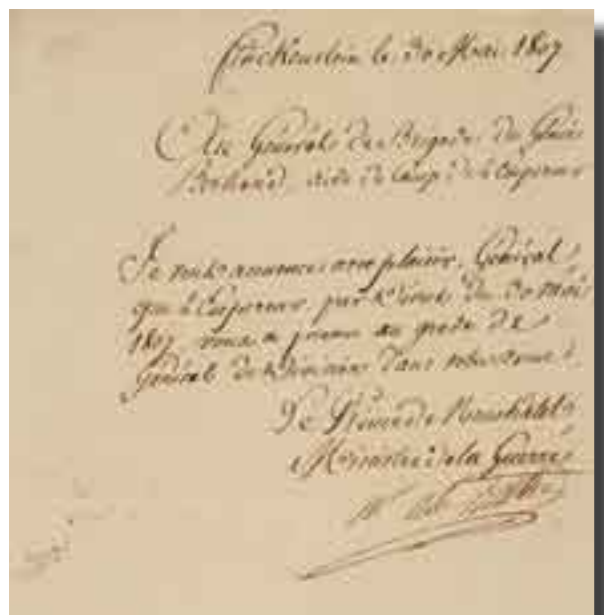 Finckenstein le 30 Mai 1807
Au Général de Brigade du Génie
Bertrand, aide de Camp de l'Empereur
Je vous annonce avec plaisir, Général
que l'Empereur, par décret du 30 Mai
1807 vous a promu au grade de
Général de Division dans votre arme.
Le Prince de Neuchatel
Ministre de la Guerre